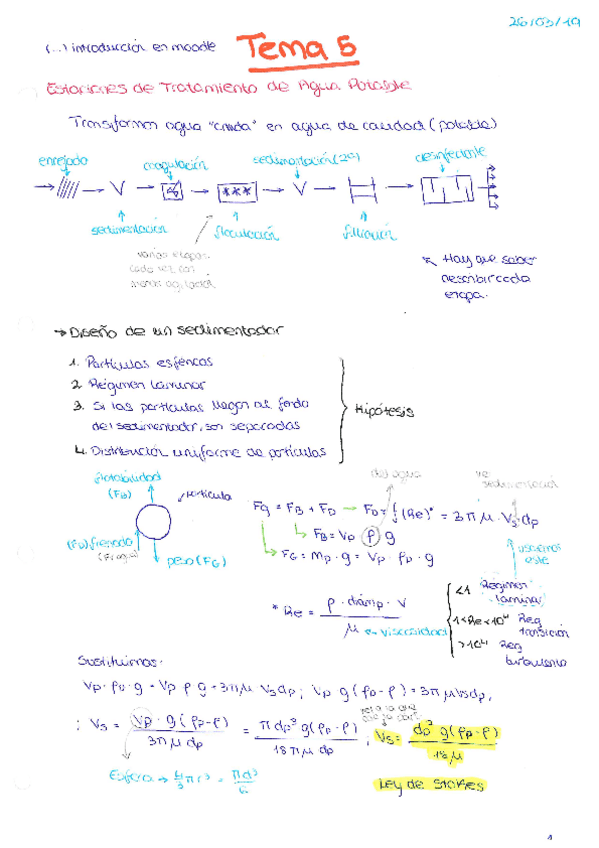 26/03/19
(...) introducción en moodle
Tema 5
Estaciones de Tratamiento de Agua Potable
Transforman agua "cruda" en agua de calidad (potable)
enrejado coagulación sedimentación (2º) desinfectante
sedimentación floculación filtración
varias etapas
cada vez con
menos agitación
Hay que saber
describir cada
etapa.
→ Diseño de un sedimentador
1. Partículas esféricas
2. Régimen laminar
3. Si las partículas llegan al fondo
del sedimentador, son separadas
4. Distribución uniforme de partículas
Hipótesis
flotabilidad
(FB)
partícula
(FD) frenado
(Fragua)
peso (FG)
del agua
vel
sedimentación
Fg = FB + FD → FD = f(Re)* = 3πμ·Vs·dp
FB = Vp ρ g
FG = mp·g = Vp·ρp·g
usaremos
este
* Re = ρ·diámp·v / μ ← viscosidad
<1 Régimen
laminar
1<Re<10⁴ Reg
transición
>10⁴ Reg
turbulento
Sustituimos:
Vp·ρp·g = Vp ρ g = 3πμ Vs dp ; Vp g(ρp-ρ) = 3πμVsdp,
; Vs = Vp·g(ρp-ρ) / 3πμ dp = πdp³ g(ρp-ρ) / 18πμ dp ; Vs = dp² g(ρp-ρ) / 18μ
Esfera → 4/3 πr³ = πd³/6
Ley de Stokes
1